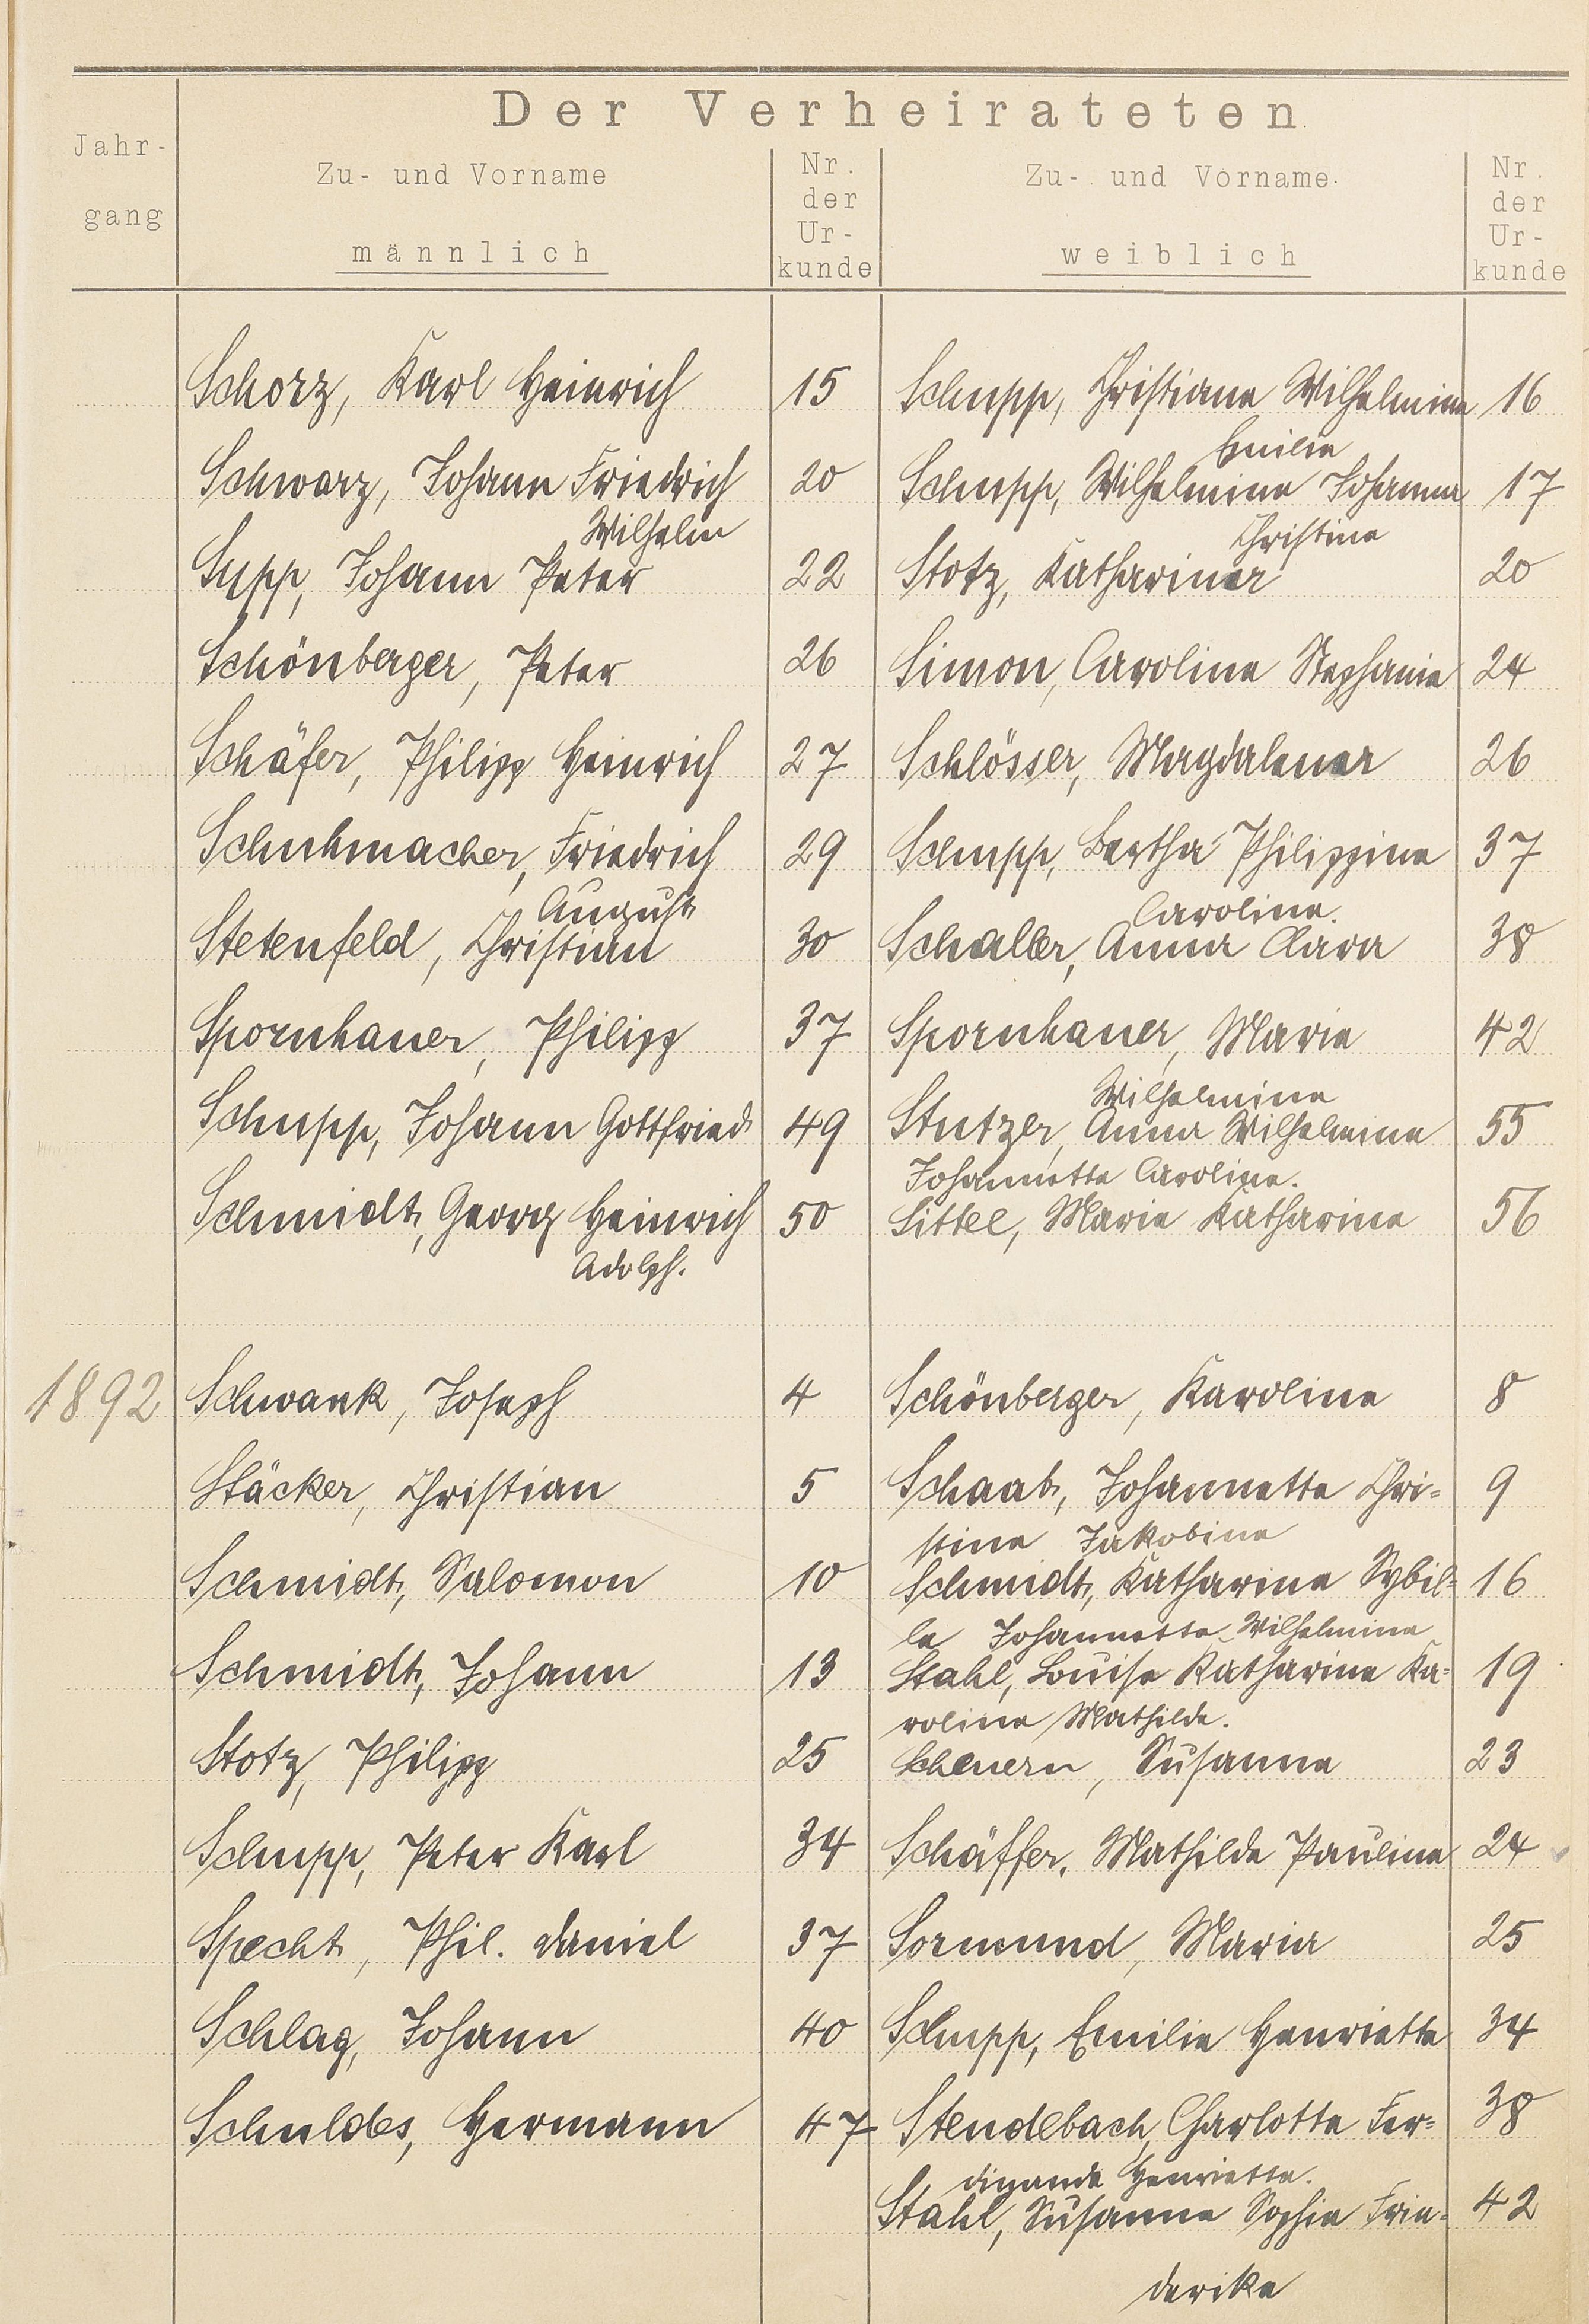 Der Verheirateten.
Jahr-
gang
Zu- und Vorname
männlich
Nr.
der
Ur-
kunde
Zu- und Vorname.
weiblich
Nr.
der
Ur-
kunde
Schorz, Karl Heinrich 15 Schupp, Christiane Wilhelmine 16
Emilie
Schwarz, Johann Friedrich 20 Schupp, Wilhelmine Johanna 17
Wilhelm Christine
Supp, Johann Peter 22 Stotz, Katharina 20
Schönberger, Peter 26 Simon, Caroline Stephanie 24
Schäfer, Philipp Heinrich 27 Schlösser, Magdalena 26
Schuhmacher, Friedrich 29 Schupp, Bertha Philippine 37
August Caroline.
Stetenfeld, Christian 30 Schaller, Anna Clara 38
Spornhauer, Philipp 37 Spornhauer, Marie 42
Wilhelmine
Schupp, Johann Gottfried 49 Stutzer, Anna Wilhelmine 55
Johannette Caroline.
Schmidt, Georg Heinrich 50 Sittel, Marie Katharine 56
Adolph.
1892 Schwank, Joseph 4 Schönberger, Karoline 8
Stäcker, Christian 5 Schaab, Johannette Chri=
stine Jakobine 9
Schmidt, Salomon 10 Schmidt, Katharine Sybil= 16
le Johannette Wilhelmine
Schmidt, Johann 13 Stahl, Louise Katharine Ka= 19
roline Mathilde.
Stotz, Philipp 25 Scheuern, Susanne 23
Schupp, Peter Karl 34 Schäffer, Mathilde Pauline 24
Specht, Phil. Daniel 37 Sormund, Maria 25
Schlag, Johann 40 Schupp, Emilie Henriette 34
Schuldes, Hermann 47 Stendebach, Charlotte Fer= 38
dinande Henriette.
Stahl, Susanne Sophie Frie= 42
derike